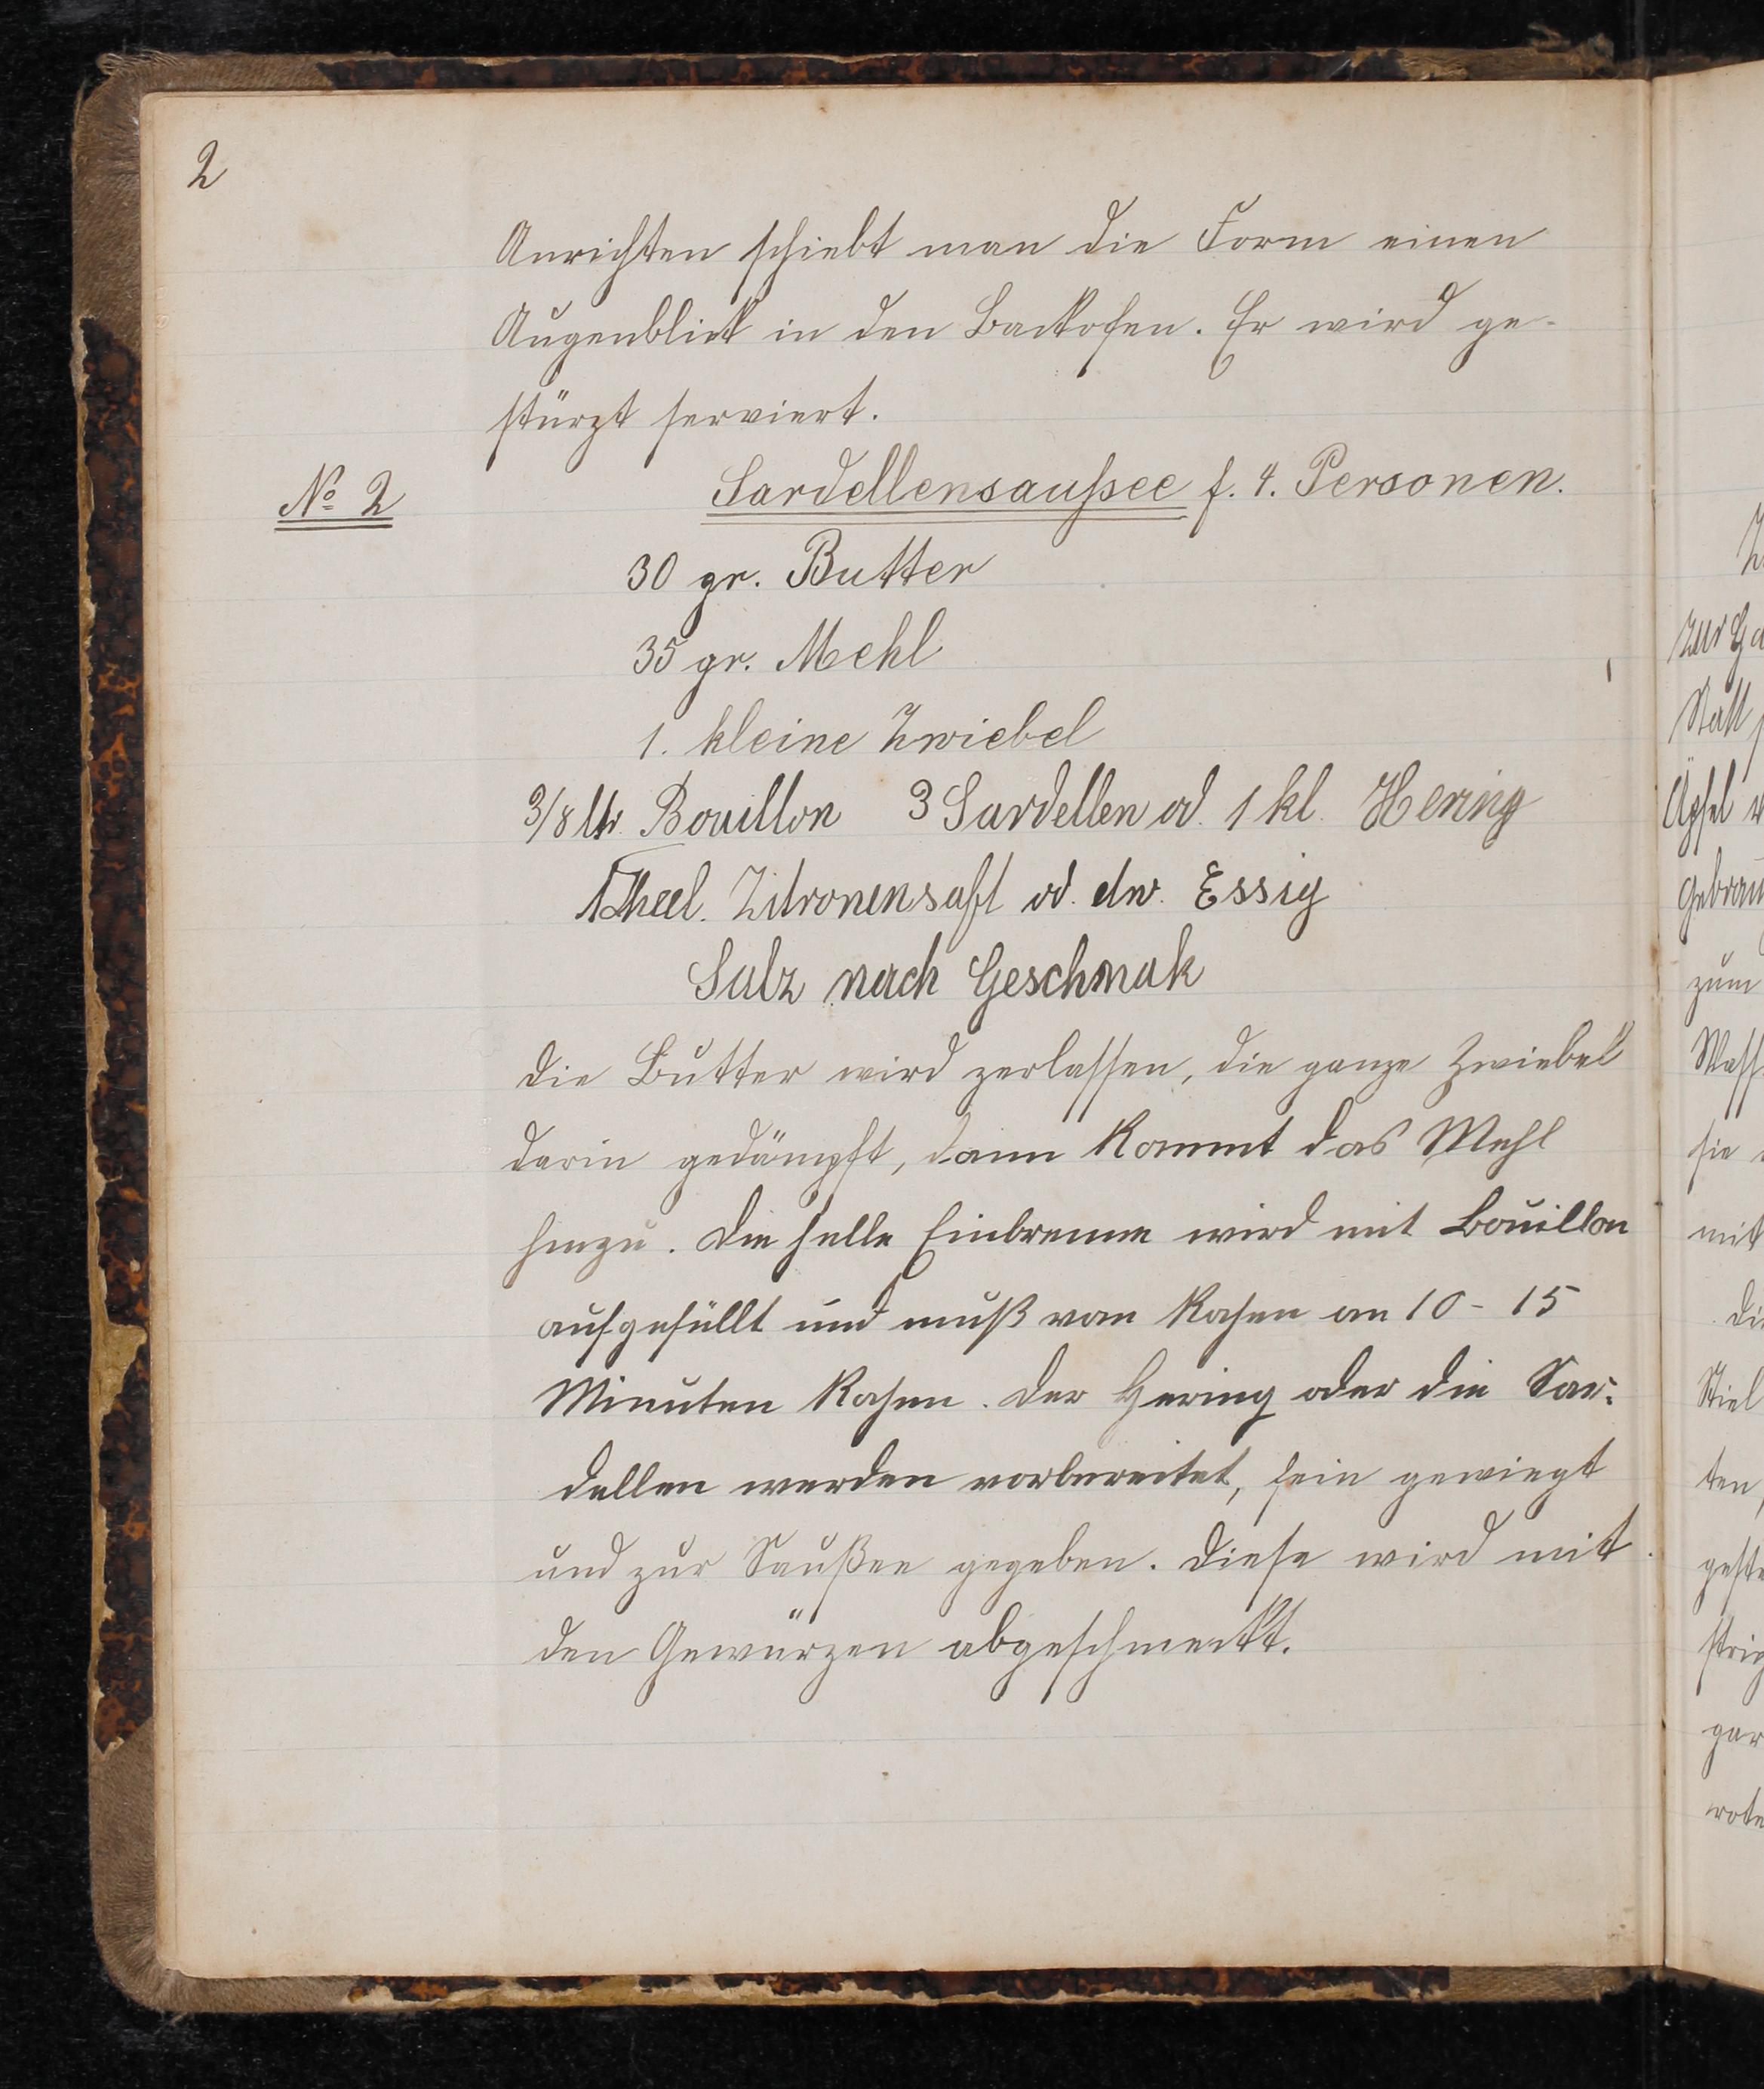 2
Anrichten schiebt man die Form einen
Augenblick in den Backofen. Er wird ge-
stürzt serviert.
No 2
Sardellensaußee f. 4. Personen.
30 gr. Butter
35 gr. Mehl
1. kleine Zwiebel
3/8 ltr. Bouillon 3 Sardellen od. 1 kl. Hering
1 Theel. Zitronensaft od. etw. Essig
Salz nach Geschmak
die Butter wird zerlassen, die ganze Zwiebel
darin gedämpft, dann kommt das Mehl
hinzu. Die helle Einbrenne wird mit Bouillon
aufgefüllt und muß vom Kochen an 10 - 15
Minuten kochen. Der Hering oder die Sar-
dellen werden vorbereitet, fein gewiegt
und zur Saußee gegeben. Diese wird mit
den Gewürzen abgeschmeckt.
zur
Äpfel
zum
sie
mit
Stiel
ten,
gar